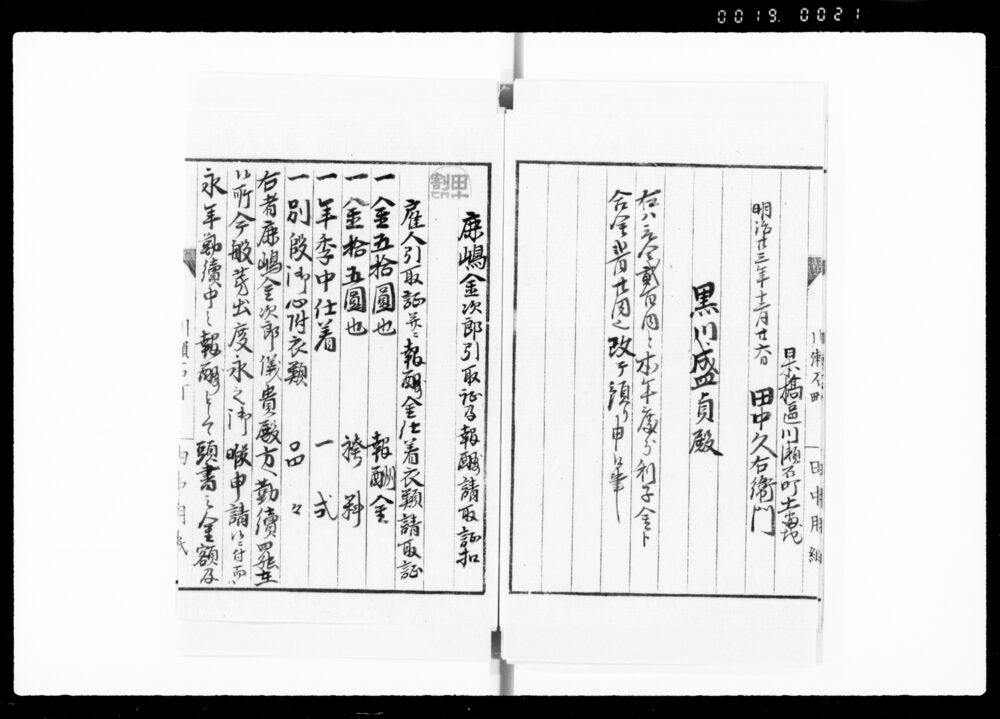 0019. 0021
日本橋區川瀬石町十番地
明治廿三年十二月廿六日 田中久右衛門
黒川盛貞殿
右ハ元金貳百円ニ本年度分利子金ト
合金 廿円之改テ預り申候
鹿嶋金次郎引取証及報酬請取証扣
雇人引取証并ニ報酬金仕着衣類請取証
一金五拾圓也 報酬金
一金拾五圓也 袴料
一年季中仕着 一式
一別段御心附衣類 品々
右者鹿嶋金次郎儀貴殿方へ勤續罷在
候所今般 出度永之御暇申請候ニ付而ハ
永年勤續中之報酬として頭書之金額及